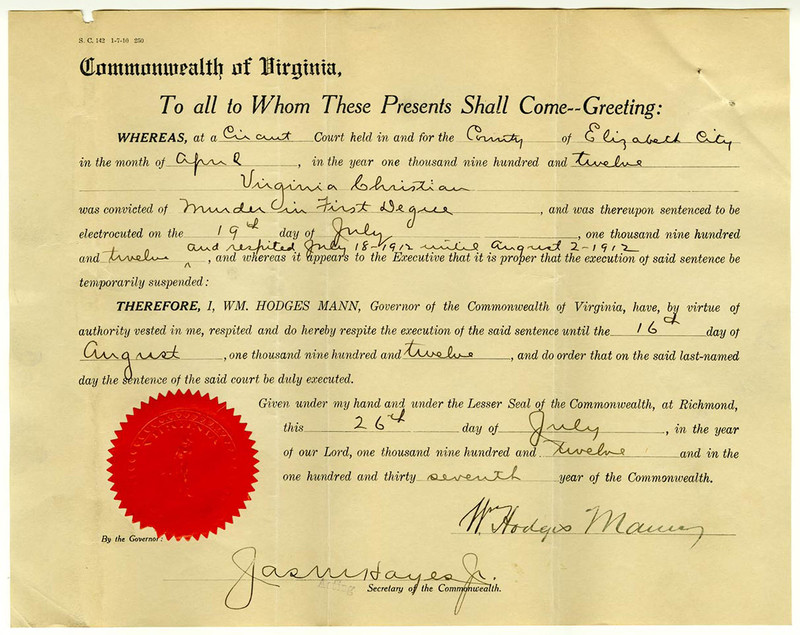 S. C. 142 1-7-10 250
Commonwealth of Virginia,
To all to Whom These Presents Shall Come--Greeting:
WHEREAS, at a Circuit Court held in and for the County of Elizabeth City
in the month of April, in the year one thousand nine hundred and twelve
Virginia Christian
was convicted of Murder in First Degree, and was thereupon sentenced to be
electrocuted on the 19th day of July, one thousand nine hundred
and respited July 18-1912 until August 2-1912
and twelve ^, and whereas it appears to the Executive that it is proper that the execution of said sentence be
temporarily suspended:
THEREFORE, I, WM. HODGES MANN, Governor of the Commonwealth of Virginia, have, by virtue of
authority vested in me, respited and do hereby respite the execution of the said sentence until the 16th day of
August, one thousand nine hundred and twelve, and do order that on the said last-named
day the sentence of the said court be duly executed.
Given under my hand and under the Lesser Seal of the Commonwealth, at Richmond,
this 26th day of July, in the year
of our Lord, one thousand nine hundred and twelve and in the
one hundred and thirty seventh year of the Commonwealth.
Wm Hodges Mann
By the Governor:
Jas M Hayes Jr.
Secretary of the Commonwealth.